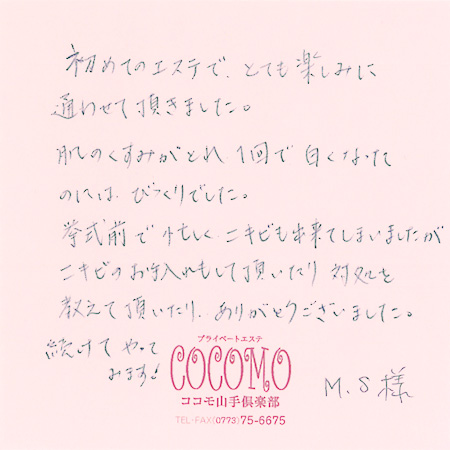 初めてのエステで、とても楽しみに
通わせて頂きました。
肌のくすみがとれ、1回で白くなった
のには、びっくりでした。
挙式前で忙しく、ニキビも出来てしまいましたが
ニキビのお手入れもして頂いたり 対処を
教えて頂いたり、ありがとうございました。
続けて やって
みます!
プライベートエステ
COCOMO
ココモ山手倶楽部
TEL・FAX(0773)75-6675
M.S様